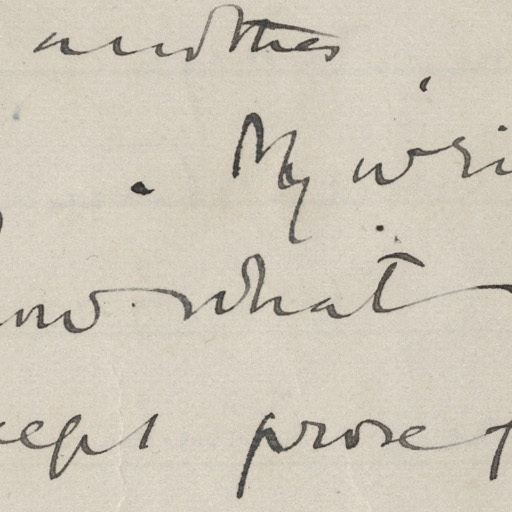 another
. My wri
now what
cept prose